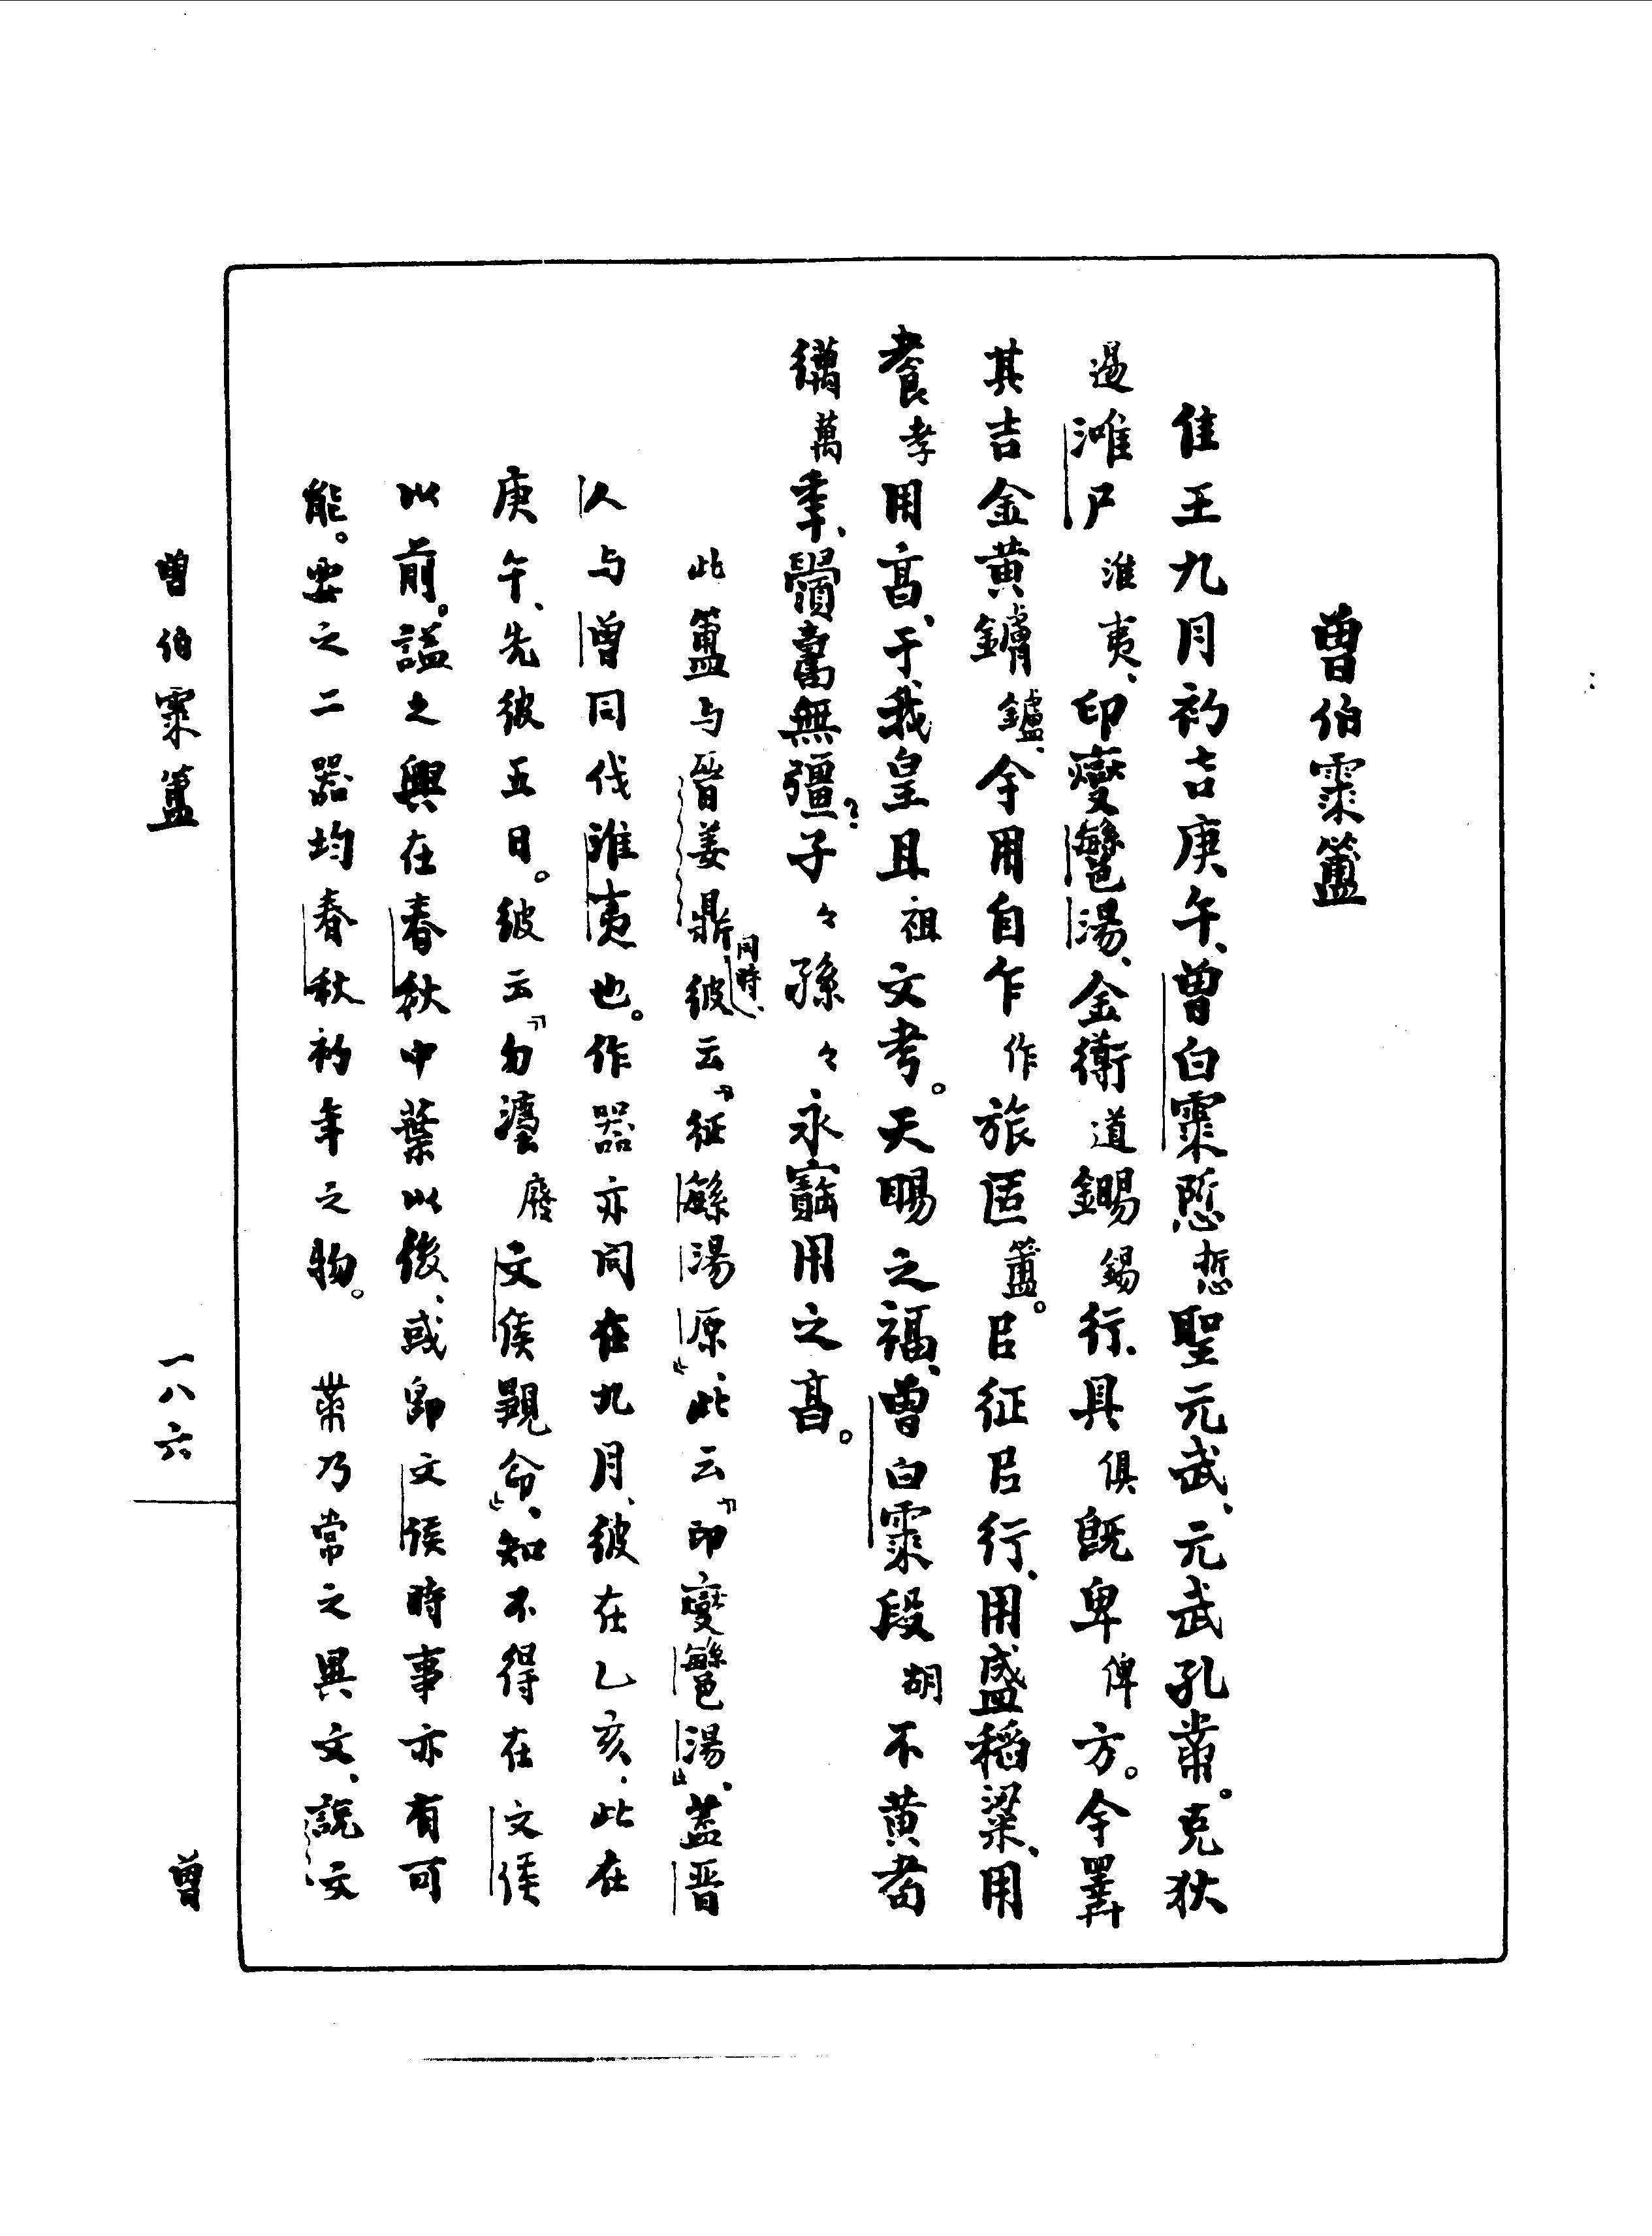 曾伯霥簠
隹王九月初吉庚午、曾白霥悊哲聖元武、元武孔黹。克狄
淮尸淮夷、印燮繁湯、金衜道錫行、具俱既卑俾方。余擇
其吉金黄鏞鑪、余用自乍作旅匿簠。㠯征㠯行、用盛稻粱、用
孝用亯、于我皇且祖文考。天賜之福、曾白霥叚胡不黄耇
萬年、眉壽無彊、子々孫々永寶用之亯。
此簠与晉姜鼎同時、彼云『征緐湯原』、此云『印燮繁湯』、蓋晉
人与曾同伐淮夷也。作器亦同在九月、彼在乙亥、此在
庚午、先彼五日。彼云『勿灋廢文侯顯命』、知不得在文侯
以前。謚之興在春秋中葉以後、或即文侯時事亦有可
能。要之二器均春秋初年之物。 黹乃常之異文、説文
曾伯霥簠 一八六 曾